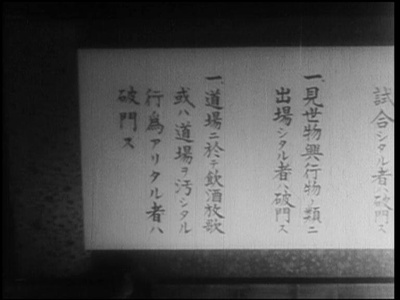 試合シタル者ハ破門ス
一、見世物興行物ノ類ニ
出場シタル者ハ破門ス
一、道場ニ於テ飲酒放歌
或ハ道場ヲ汚シタル
行爲アリタル者ハ
破門ス